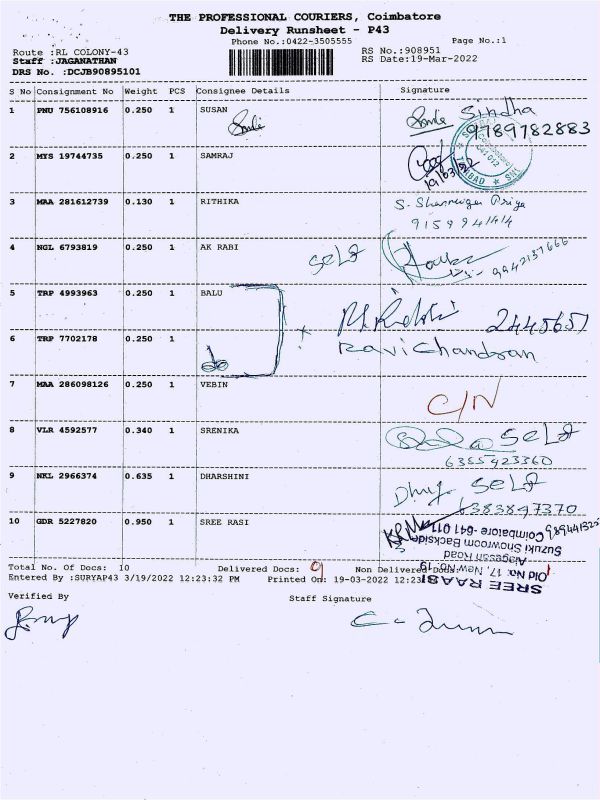 THE PROFESSIONAL COURIERS, Coimbatore
Delivery Runsheet - P43
Phone No.:0422-3505555 Page No.:1
Route :RL COLONY-43 RS No.:908951
Staff :JAGANATHAN RS Date:19-Mar-2022
DRS No. :DCJB90895101
S No Consignment No Weight PCS Consignee Details Signature
1 PNU 756108916 0.250 1 SUSAN Sindha
9789782883
2 MYS 19744735 0.250 1 SAMRAJ
19/03/22
3 MAA 281612739 0.130 1 RITHIKA S. Shanmuga Priya
9159941414
4 NGL 6793819 0.250 1 AK RABI Self
9942137666
5 TRP 4993963 0.250 1 BALU 2445657
6 TRP 7702178 0.250 1 do Ravichandran
7 MAA 286098126 0.250 1 VEBIN C/N
8 VLR 4592577 0.340 1 SRENIKA Self
6355423360
9 NKL 2966374 0.635 1 DHARSHINI Self
6383847370
10 GDR 5227820 0.950 1 SREE RASI
SREE RAASI
Old No: 17, New No.19
Alagesan Road
Suzuki Showroom Backside
Coimbatore - 641 011
Total No. Of Docs: 10 Delivered Docs: 9 Non Delivered Docs:
Entered By :SURYAP43 3/19/2022 12:23:32 PM Printed On: 19-03-2022 12:23
Verified By Staff Signature